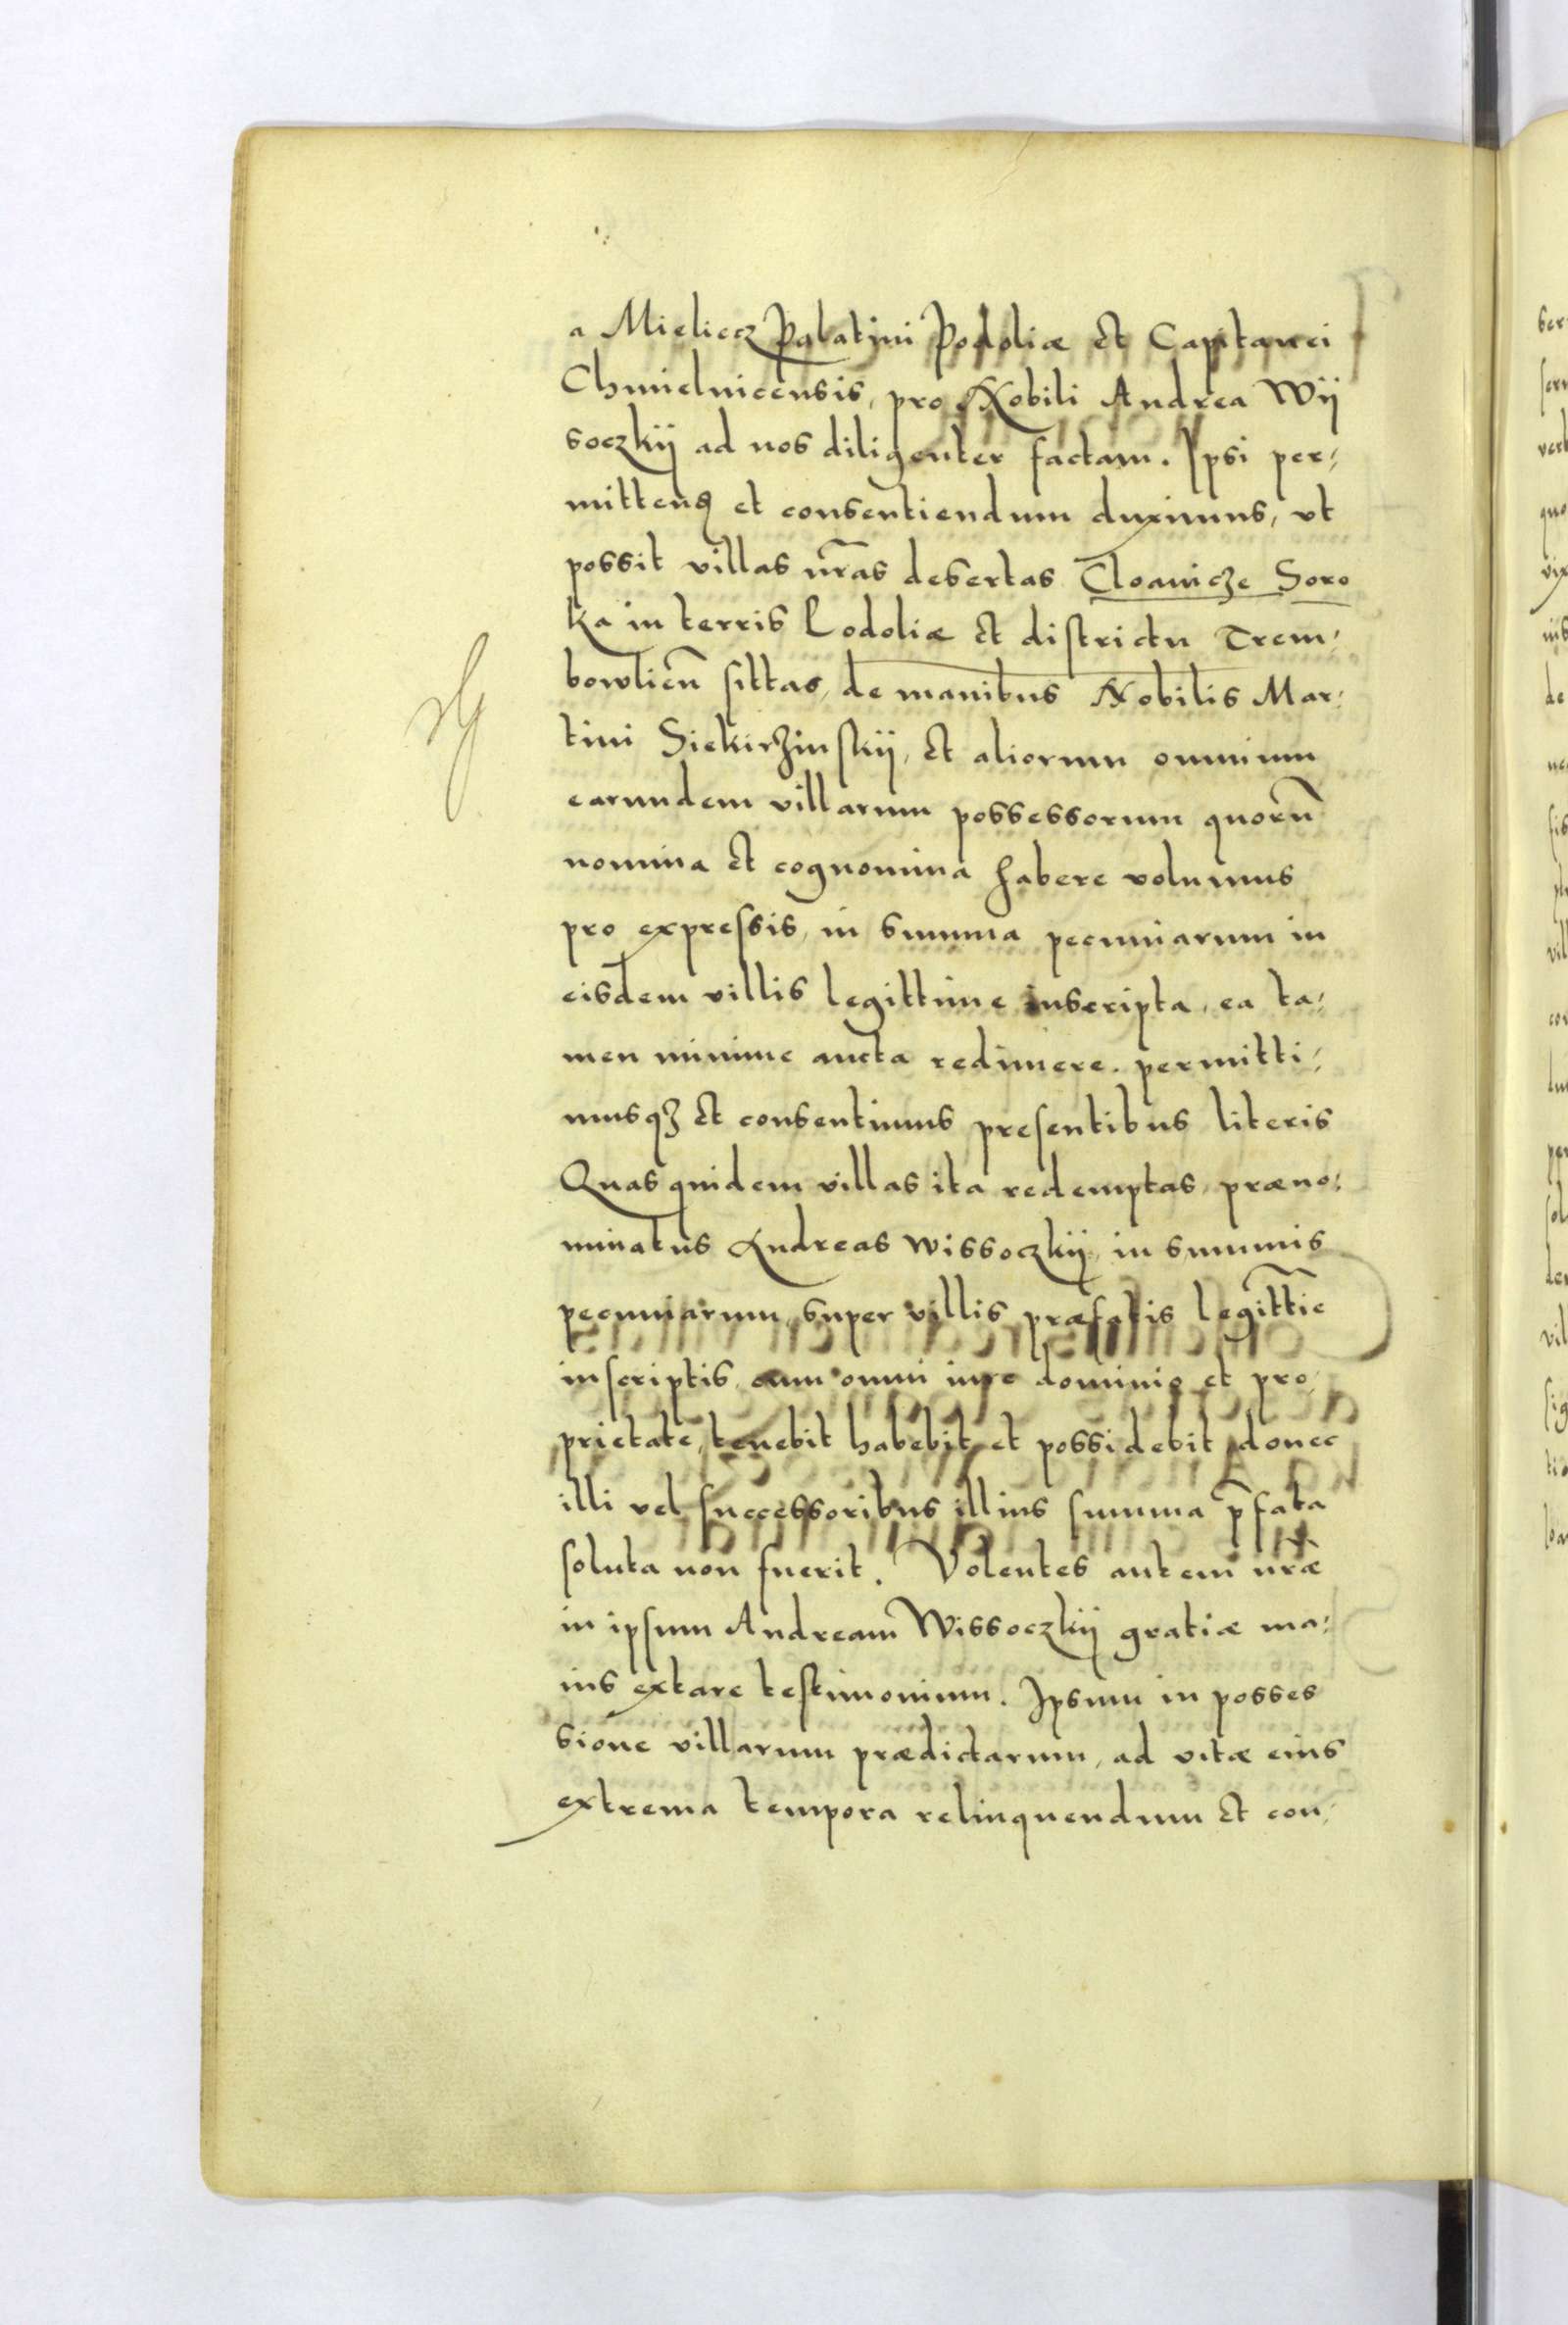 a Mieliecz Palatini Podoliæ et Capitanei
Chmielnicensis, pro Nobili Andrea Wÿ
soczkÿ ad nos diligenter factam. Ipsi per,
mittenꝗ et consentiendum duximus, vt
possit villas nr̄as desertas Cloanicze Soro
ka in terris Podoliæ et districtu Trem,
bowlien̄ sittas, de manibus Nobilis Mar,
tini Siekirzinskÿ, et aliorum omnium
earundem villarum possessorum quorū
nomina et cognomina habere volumus
pro expressis, in summa pecuniarum in
eisdem villis legittime inscripta, ea ta,
men minime aucta redimere. permitti,
musqʒ et consentimus presentibus literis
Quas quidem villas ita redemptas, præno,
minatus Andreas Wissoczkÿ, in summis
pecuniarum, super villis præfatis legittīe
inscriptis, cum omni iure dominio et pro,
prietate, tenebit habebit et possidebit donec
illi vel successoribus illius summa p̄fata
soluta non fuerit. Volentes autem nr̄æ
in ipsum Andream Wissoczkÿ gratiæ ma,
ius extare testimonium. Ipsum in posses
sione villarum prædictarum, ad vitæ eius
extrema tempora relinquendum et con,